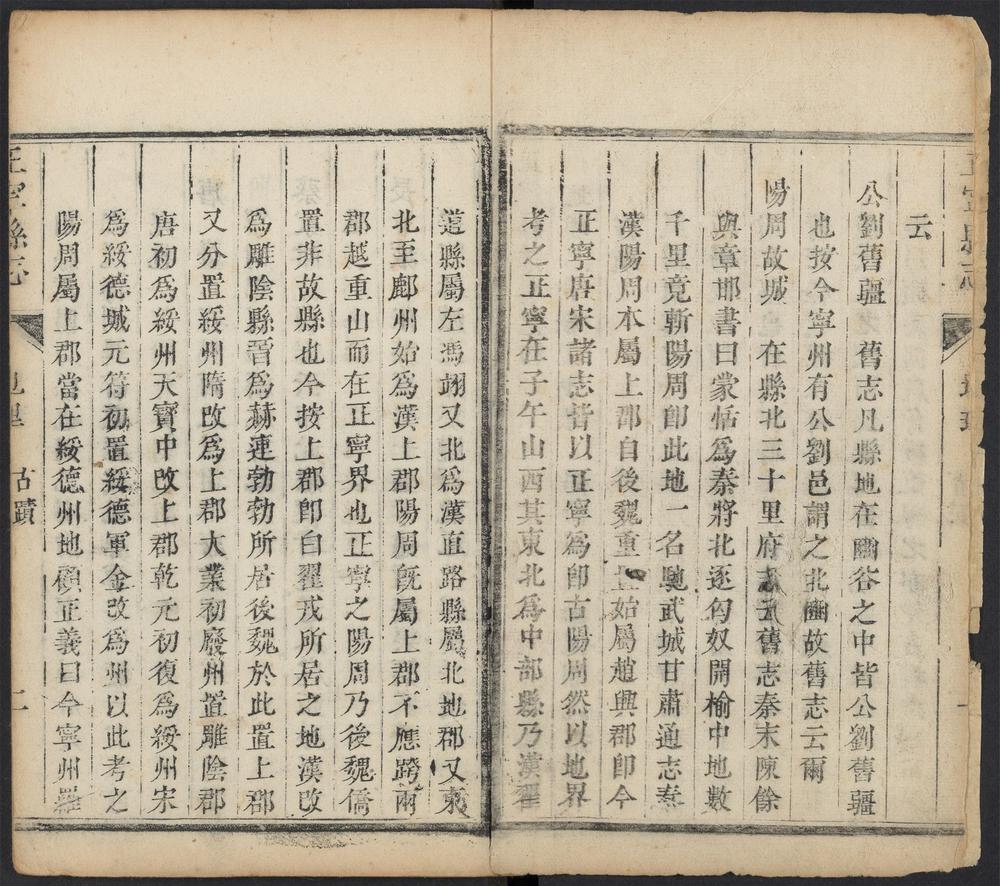 云
公劉舊疆　舊志凡縣地在豳谷之中皆公劉舊疆
也按今寧州有公劉邑謂之北豳故舊志云爾
陽周故城　在縣北三十里府志云舊志秦末陳餘
與章邯書曰蒙恬爲秦將北逐匈奴開榆中地數
千里竟斬陽周卽此地一名馳武城甘肅通志秦
漢陽周本屬上郡自後魏重置始屬趙興郡卽今
正寧唐宋諸志皆以正寧爲卽古陽周然以地界
考之正寧在子午山西其東北爲中部縣乃漢翟
道縣屬左馮翊又北爲漢直路縣屬北地郡又東
北至鄜州始爲漢上郡陽周旣屬上郡不應跨兩
郡越重山而在正寧界也正寧之陽周乃後魏僑
置非故縣也今按上郡卽白翟戎所居之地漢改
爲雕陰縣晉爲赫連勃勃所居後魏於此置上郡
又分置綏州隋改爲上郡大業初廢州置雕陰郡
唐初爲綏州天寶中改上郡乾元初復爲綏州宋
爲綏德城元符初置綏德軍金改爲州以此考之
陽周屬上郡當在綏德州地顧正義曰今寧州羅
正寧縣志
古蹟
二